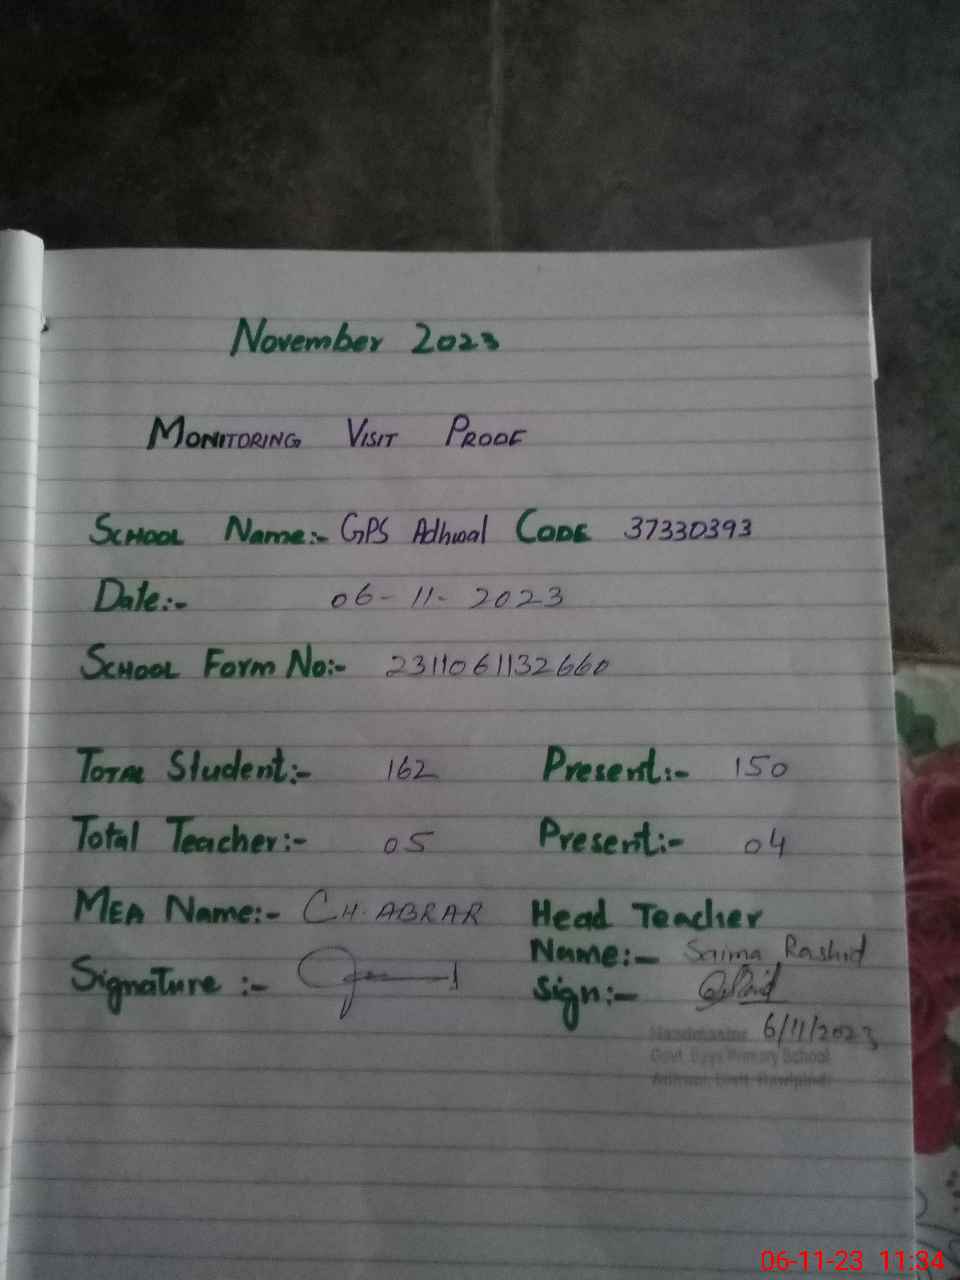 November 2023
MONITORING VISIT PROOF
SCHOOL Name:- GPS Adhwal CODE 37330393
Date:- 06-11-2023
SCHOOL Form No:- 2311061132660
TOTAL Student:- 162 Present:- 150
Total Teacher:- 05 Present:- 04
MEA Name:- CH. ABRAR Head Teacher
Name:- Saima Rashid
Signature :- Sign:-
6/11/2023
Headmaster
Govt. Boys Primary School
06-11-23 11:34